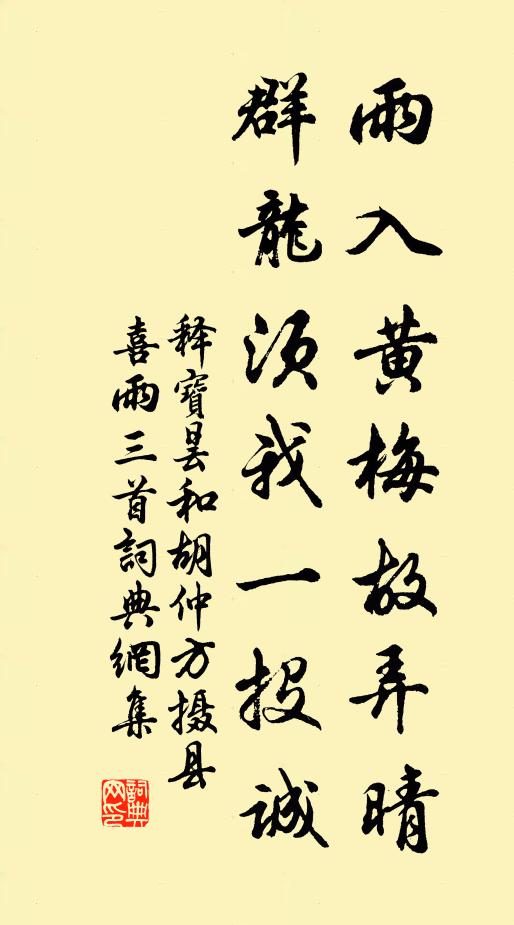 雨入黄梅故弄晴
群龍須我一投誠
释寶曇和胡仲方摄县
喜雨三首詞典網集
詞典网印